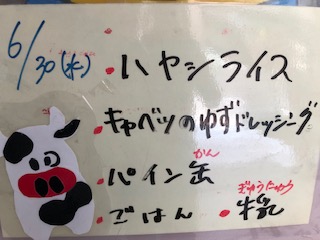 6/30(水)
・ハヤシライス
・キャベツのゆずドレッシング
かん
・パイン缶
ぎゅうにゅう
・ごはん ・牛乳